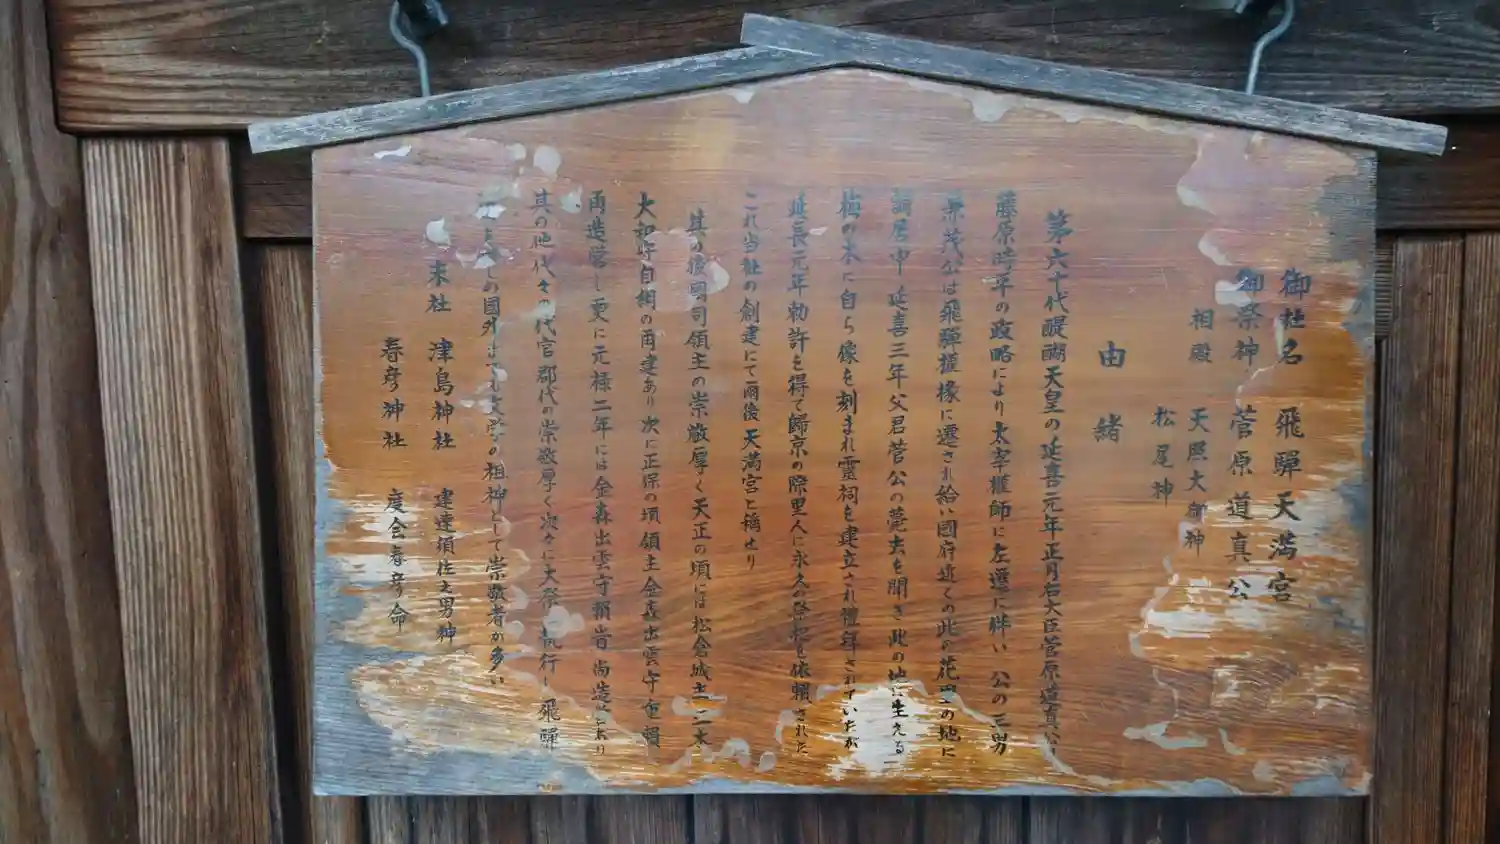 御社名 飛騨天満宮
御祭神 菅原道真公
相殿 天照大御神
松尾神
由緒
第六十代醍醐天皇の延喜元年正月右大臣菅原道真公
藤原時平の政略により太宰権師に左遷に伴い 公の三男
兼茂公は飛騨権掾に遷され給い國府近くの此の花里の地に
謫居中 延喜三年父君菅公の薨去を聞き此の地に生える
梅の木に自ら像を刻まれ霊祠を建立され禮拝されていたが
延長元年勅許を得て帰京の際里人に永久の祭祀を依頼された
これ当社の創建にて爾後天満宮と稱せり
其の後國司領主の崇敬厚く天正の頃には松倉城主三木
大和守自綱の再建あり 次に正保の頃領主金森出雲守重頼
再造営し更に元禄二年には金森出雲守頼旹尚造営あり
其の他代々の代官郡代の崇敬厚く次々に大祭を執行し飛騨
の國外までも文学の祖神として崇敬者が多い
末社 津島神社 建速須佐之男神
春彦神社 度会春彦命